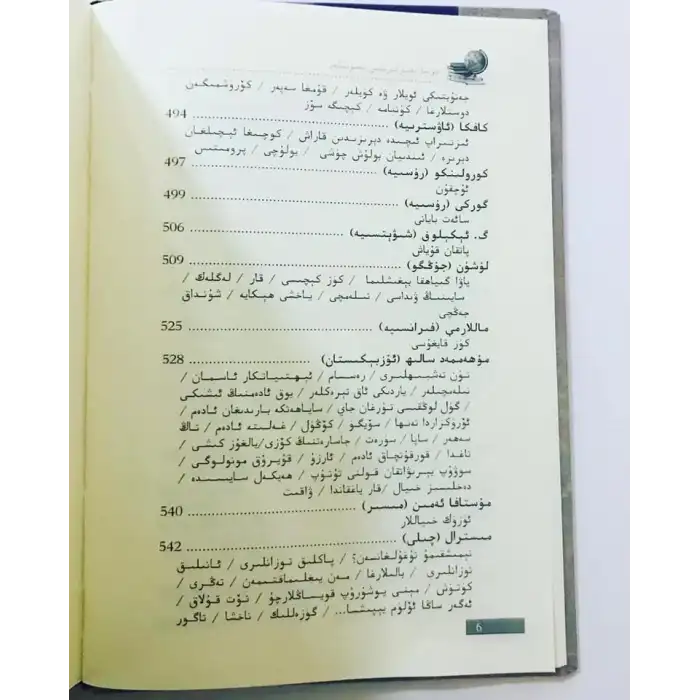 جەنۇبتىكى ئويلار ۋە كۈيلەر / قۇمغا سەپەر / كۆرۈشمىگەن
دوستلارغا / كۈتىنامە / كىچىگە سۆز
كافكا (ئاۋستىرىيە) 494
ئىچىدە دېرىزىدىن قاراش / كوچىغا ئېچىلغان
دېرىزە / ئىندىيان بولۇش چۈشى / يولۇچى / پرومىتىس
كورولىنكو (رۇسىيە) 497
ئۇچقۇن
گوركى (رۇسىيە) 499
سائەت بايانى
گ. ئېكېلوق (شىۋېتسىيە) 506
پاتقان قۇياش
لۇشۈن (جۇڭگو) 509
ياۋا گىياھقا بېغىشلىما / كۈز كېچىسى / قار / لەگلەك /
سايىنىڭ ۋىداسى / تىلەمچى / ياخشى ھېكايە / شۇنداق
جەڭچى
ماللارمې (فىرانسىيە) 525
كۈز قايغۇسى
مۇھەممەد سالىھ (ئۆزبېكىستان) 528
تۈن تەشبىھلىرى / رەسسام / ئېھتىياتكار ئاسمان /
تىلەمچىلەر / ياردىكى ئاق تېرەكلەر / يوق ئادەمنىڭ ئىشىكى
/ گۈل لوڭقىسى تۇرغان جاي / ساياھەتكە بارىدىغان ئادەم /
ئۇزۇكزاردا تەنھا / سۆيگۈ / كۆڭۈل / غەلىتە ئادەم / تاڭ
سەھەر / ساپا / سۈرەت / جاسارەتنىڭ كۆزى/يالغۇز كىشى /
تاغدا / قورقۇنچاق ئادەم / ئارزۇ / قۇيرۇق مونولوگى /
سوۋۇپ بېرىۋاتقان قولنى تۇتۇپ / ھەيكەل سايىسىدە /
دەخلىسىز خىيال /قار ياغقاندا / ۋاقىت
مۇستافا ئەمىن (مىسىر) 540
ئۈزۈك خىياللار
مىسترال (چىلى) 542
نېمىشقىمۇ تۇغۇلغانسەن؟ / پاكلىق توزانلىرى / ئانىلىق
توزانلىرى / بالىلارغا / مەن يىغلىماقتىمەن / تەڭرى /
كۈتۈش / مېنى يوشۇرۇپ قويساڭلارچۇ / تۆت قۇلاق /
ئەگەر ساڭا ئۆلۈم يېپىشسا... / گۈزەللىك / ناخشا / تاگور
6